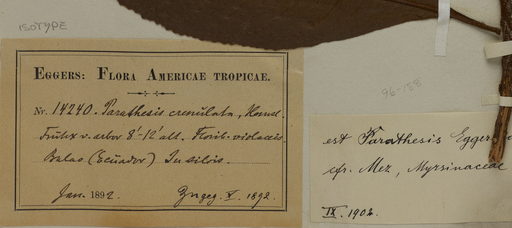 ISOTYPE
EGGERS: FLORA AMERICAE TROPICAE.
Nr. 14240. Parathesis crenulata, Hook.
Frutex v. arbor 8'-12' alt. Florib. violaceis
Balao (Ecuador) In silvis.
Jan. 1892. V. 1892.
96-158
est Parathesis Eggers
cfr. Mez, Myrsinaceae
IX. 1902.